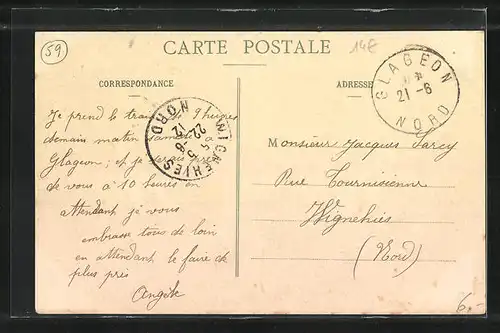 59.
CARTE POSTALE
148
CORRESPONDANCE
ADRESSE
GLAGEON
21 -6
NORD
WIGNEHIES
22-6
12
NORD
Je prend le train de 9 heures
demain matin samedi à
Glageon; et je serais près
de vous à 10 heures en
attendant je vous
embrasse tous de loin
en attendant le faire de
plus près
Angèle
Monsieur Jacques Larcy
Rue Tournisienne
Wignehies
(Nord)
6.-